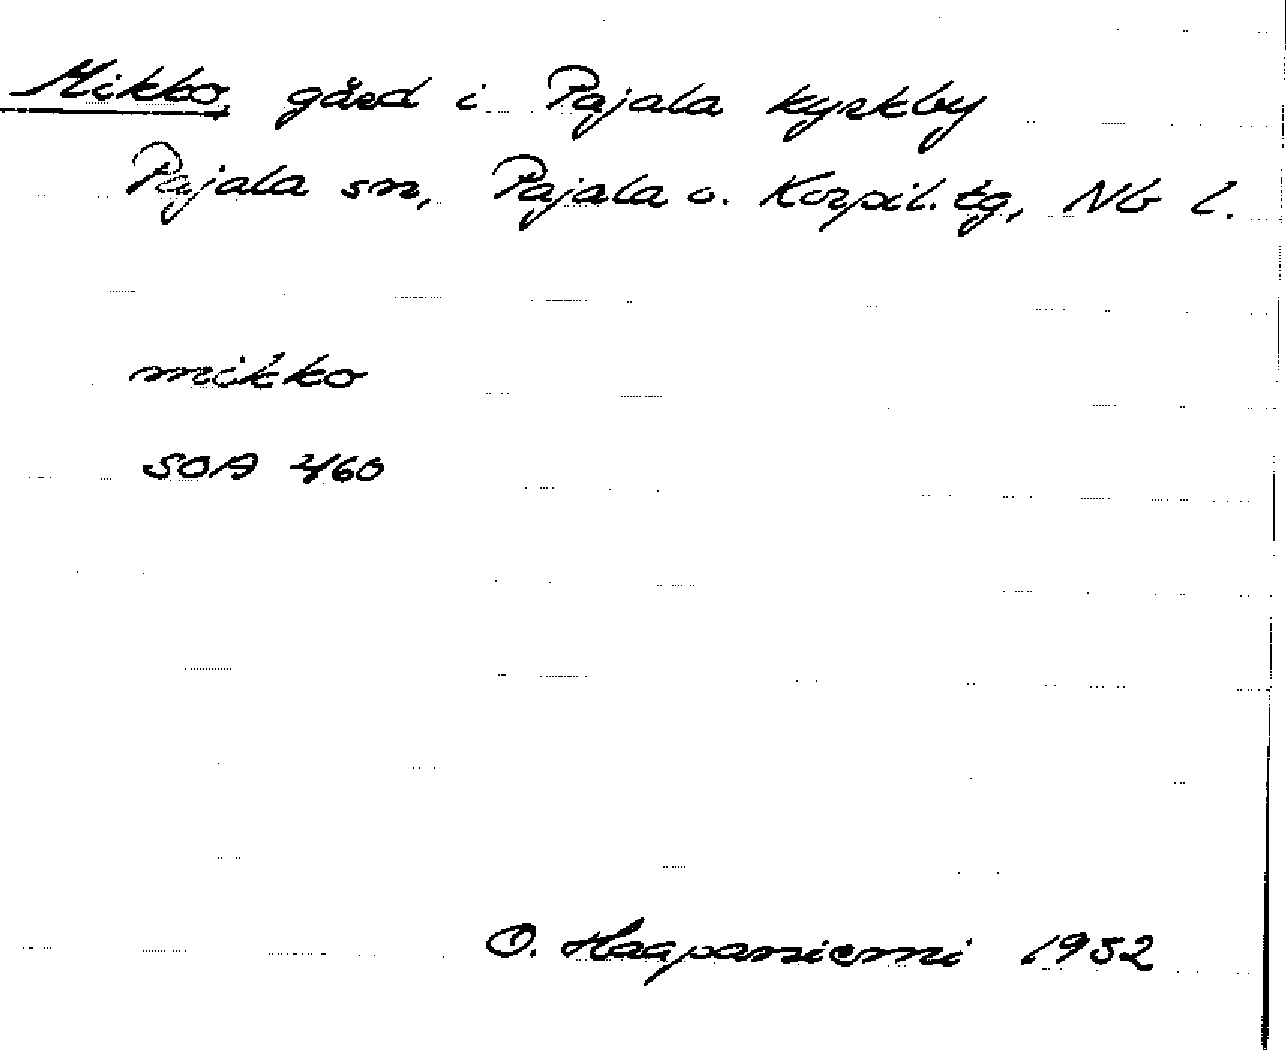 Mikko, gård i Pajala kyrkby
Pajala sn, Pajala o. Korpil. tg, Nb l.
mikko
SOA 2/60
O. Haapaniemi 1952